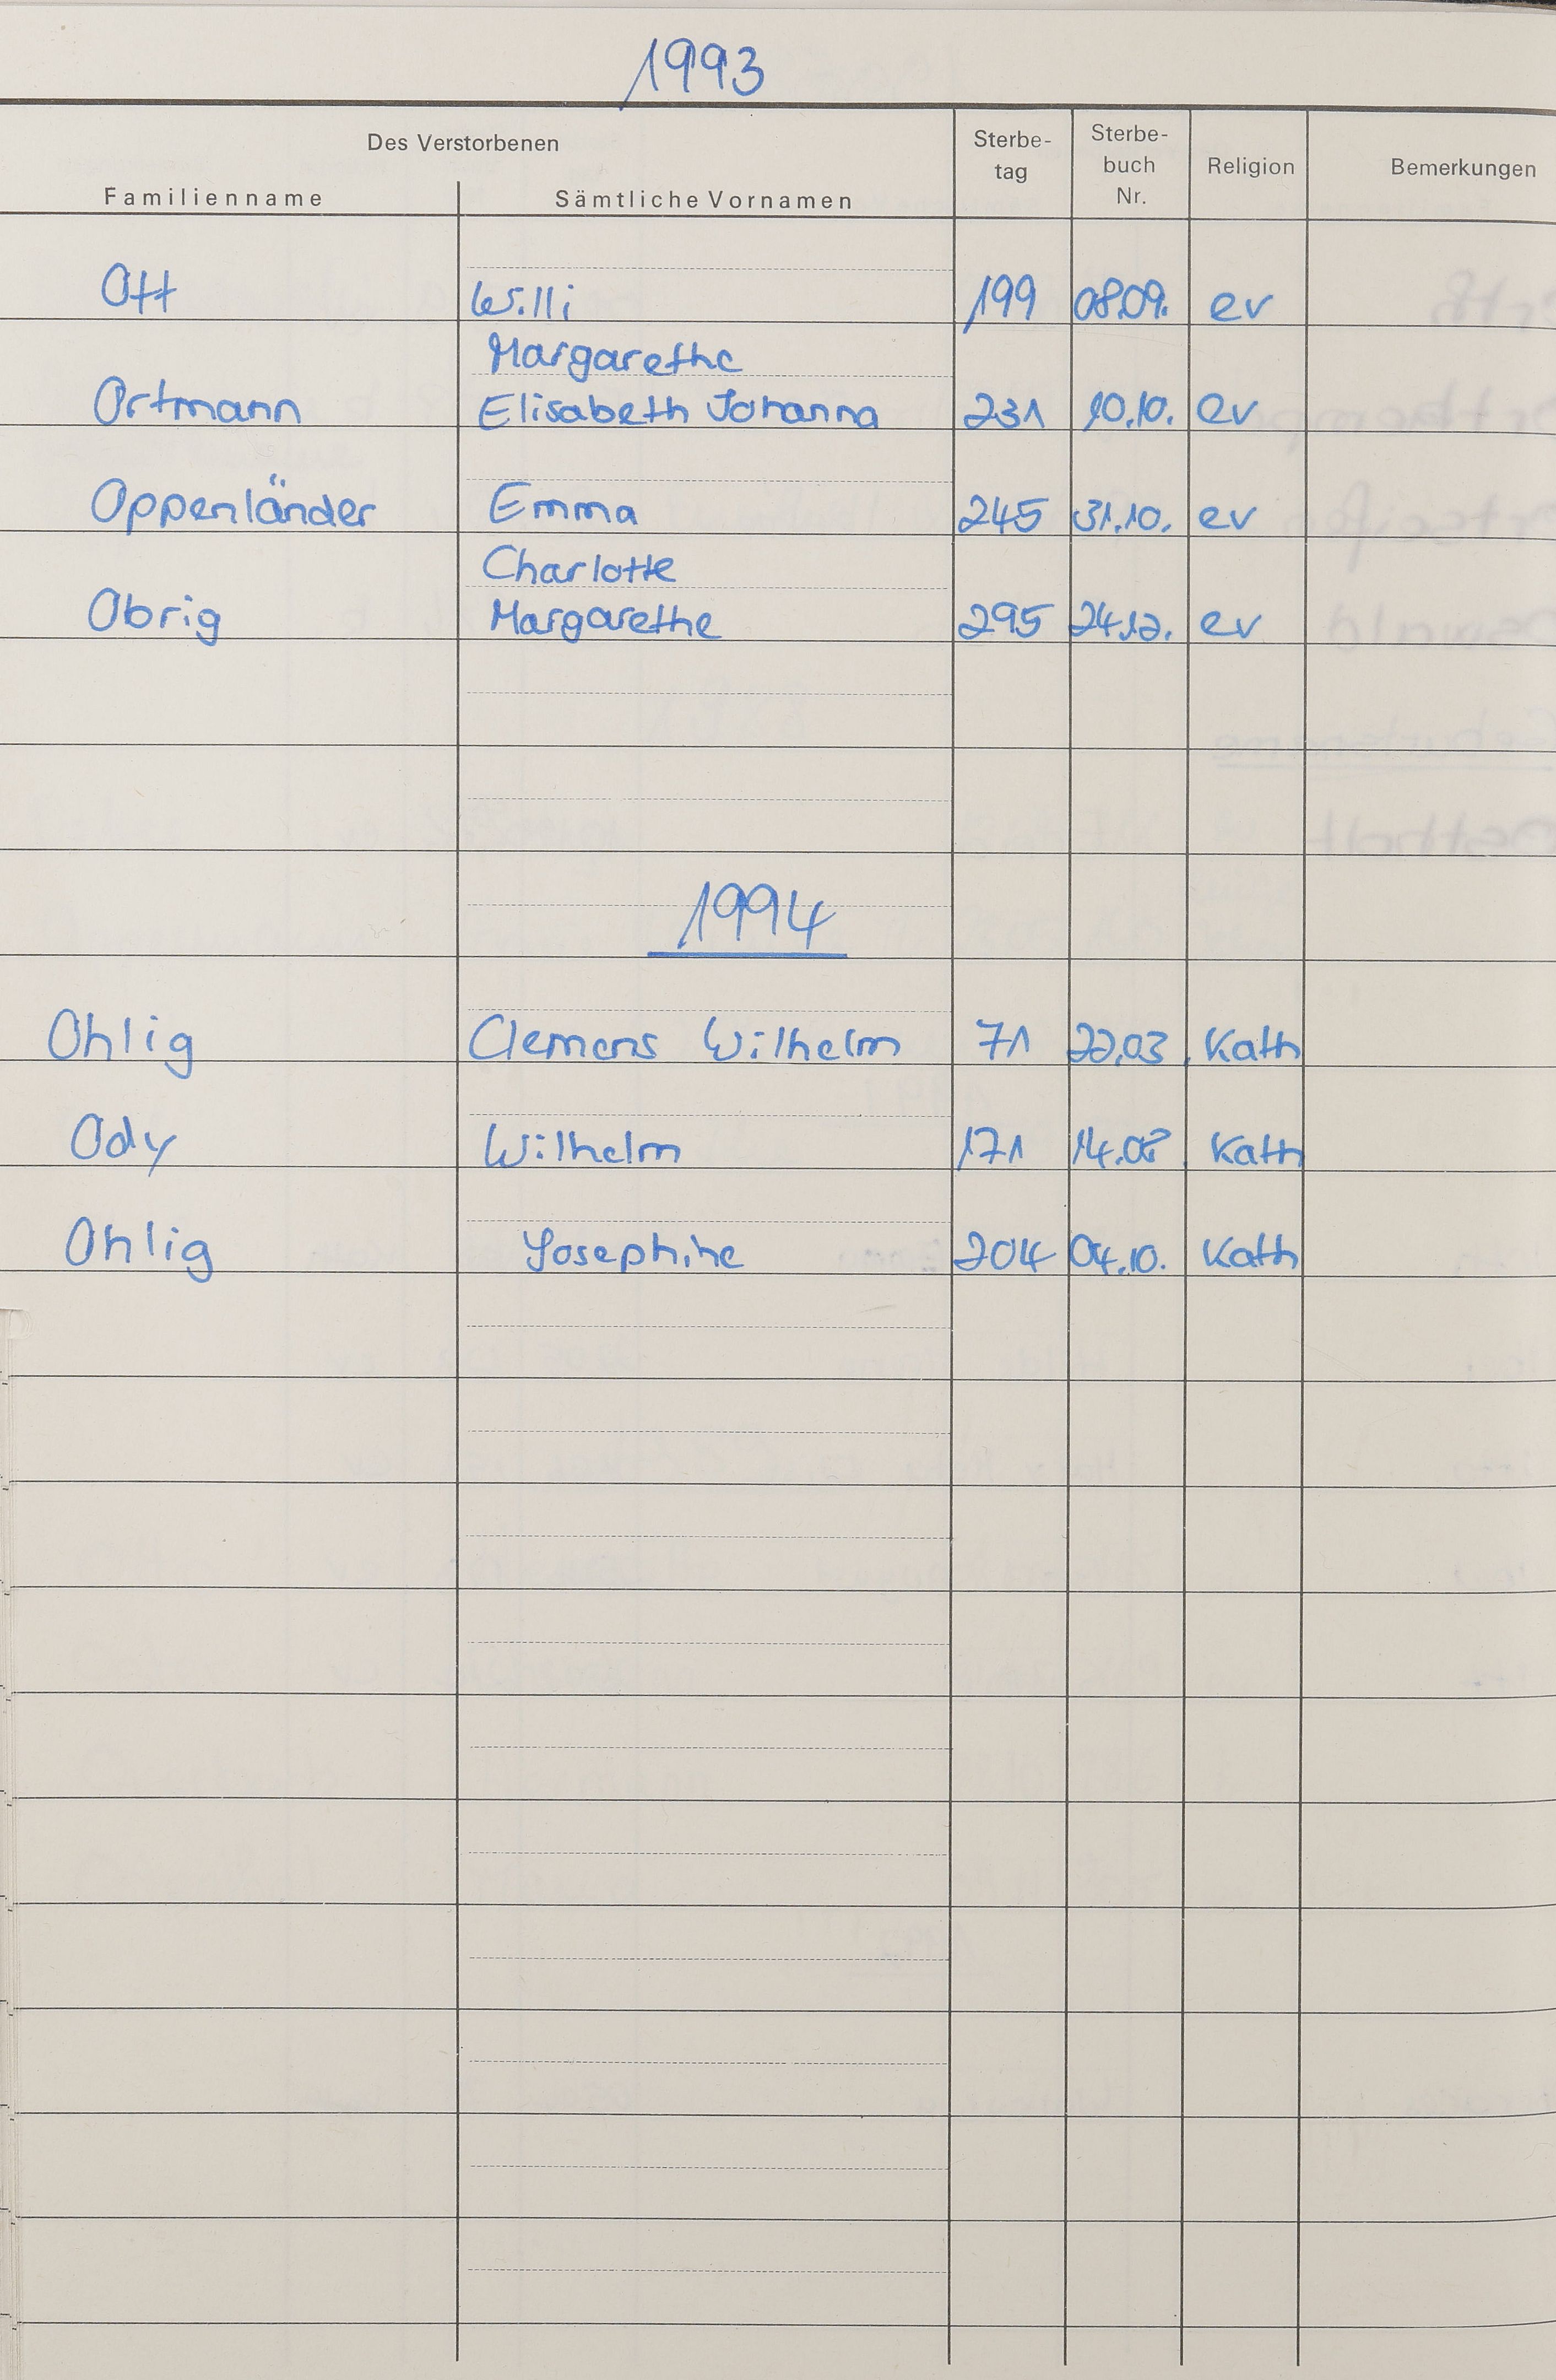 1993
Des Verstorbenen
Familienname Sämtliche Vornamen Sterbe-tag Sterbe-buch Nr. Religion Bemerkungen
Ott Willi 199 08.09. ev
Margarethe
Ortmann Elisabeth Johanna 231 10.10. ev
Oppenländer Emma 245 31.10. ev
Charlotte
Obrig Margarethe 295 24.12. ev
1994
Ohlig Clemens Wilhelm 71 22.03. Kath
Ody Wilhelm 171 14.08. Kath
Ohlig Josephine 204 04.10. Kath